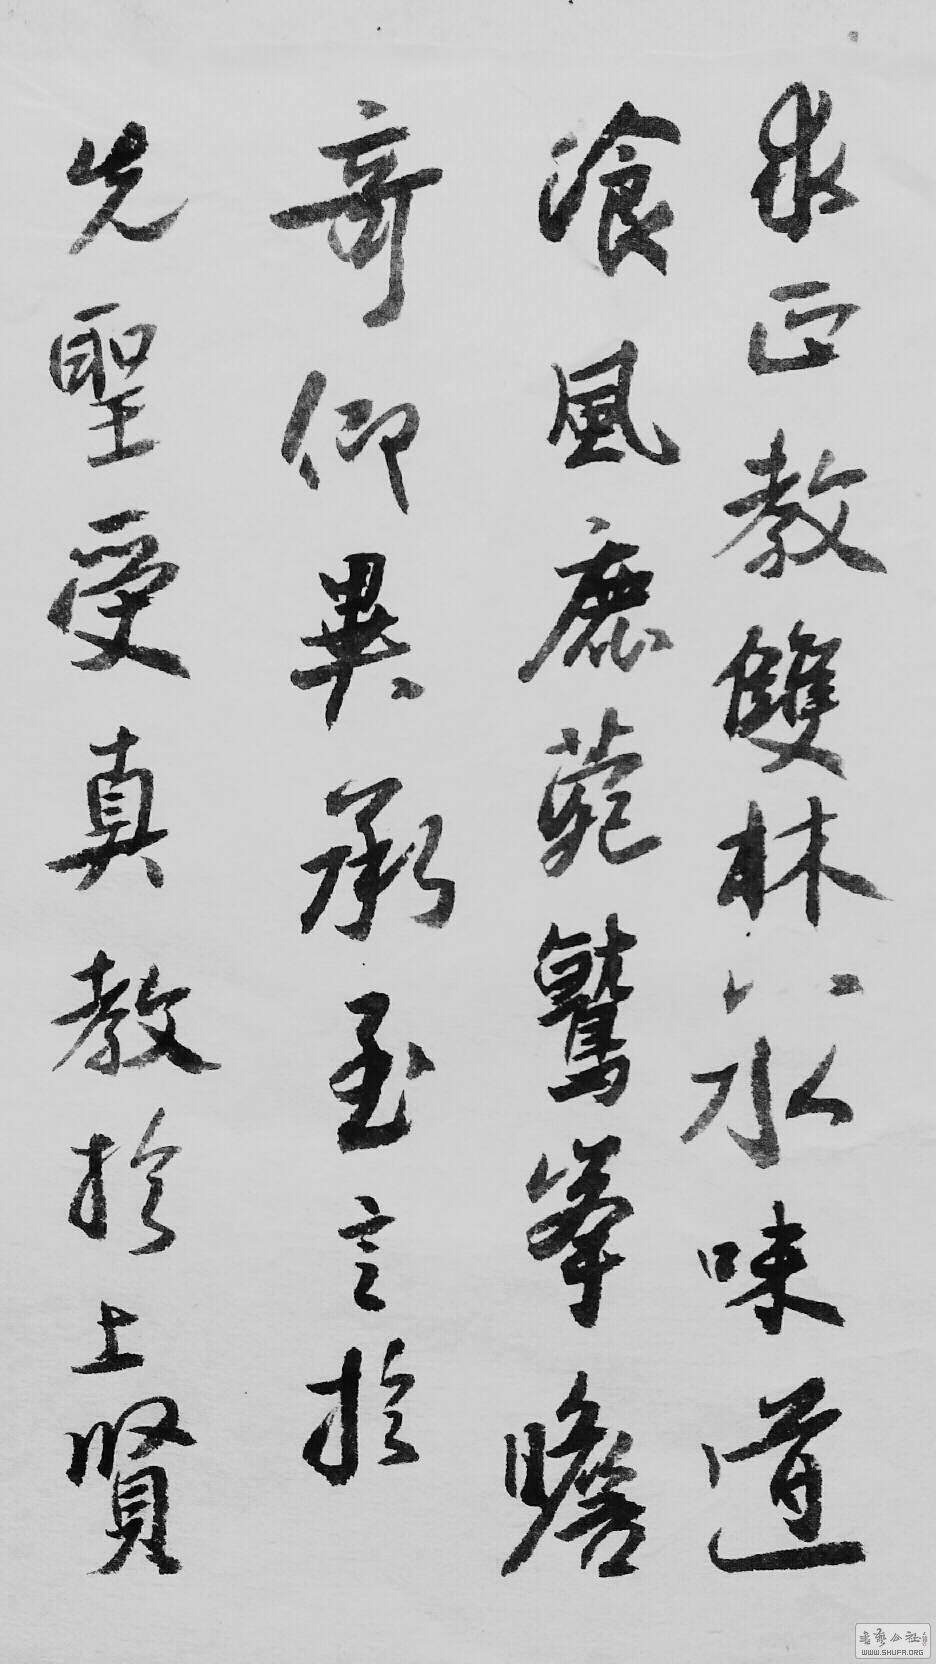 求正教雙林八水味道
飡風鹿菀鷲峯瞻
奇仰異承至言於
先聖受真教於上賢
書藝公社
WWW.SHUFA.ORG